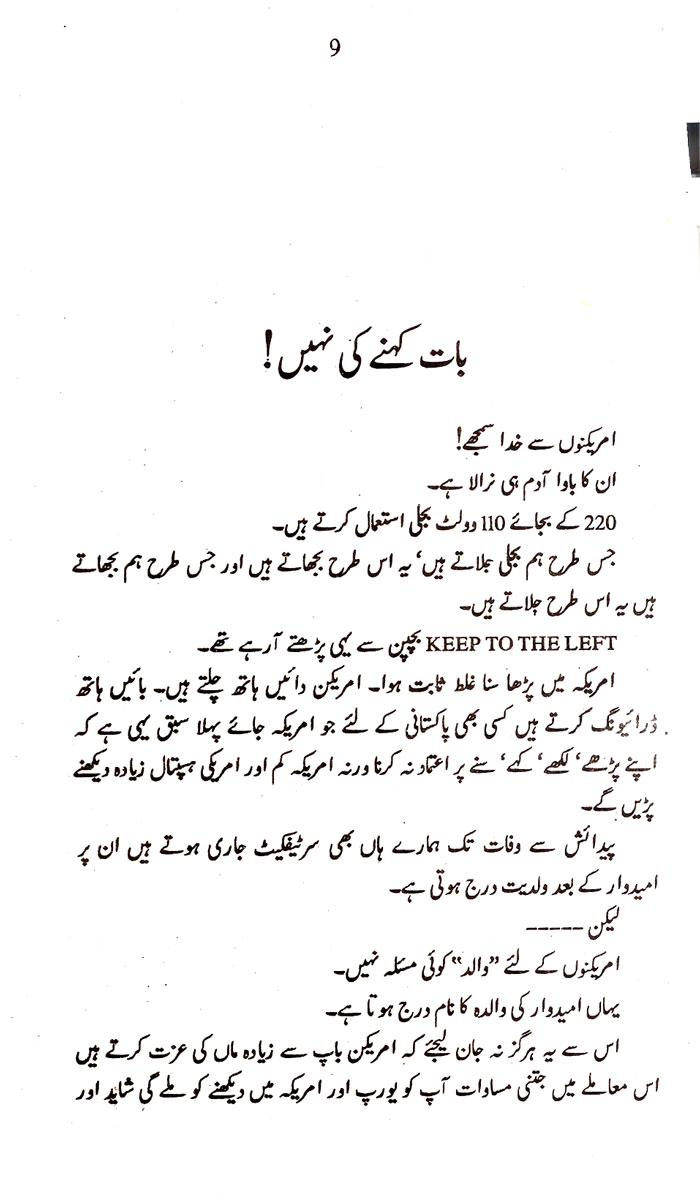 9
بات کہنے کی نہیں!
امریکنوں سے خدا سمجھے!
ان کا باوا آدم ہی نرالا ہے۔
220 کے بجائے 110 وولٹ بجلی استعمال کرتے ہیں۔
جس طرح ہم بجلی جلاتے ہیں، یہ اس طرح بجھاتے ہیں اور جس طرح ہم بجھاتے
ہیں یہ اس طرح جلاتے ہیں۔
KEEP TO THE LEFT بچپن سے یہی پڑھتے آرہے تھے۔
امریکہ میں پڑھا سنا غلط ثابت ہوا۔ امریکن دائیں ہاتھ چلتے ہیں۔ بائیں ہاتھ
ڈرائیونگ کرتے ہیں کسی بھی پاکستانی کے لئے جو امریکہ جائے پہلا سبق یہی ہے کہ
اپنے پڑھے، لکھے، کہے، سنے پر اعتماد نہ کرنا ورنہ امریکہ کم اور امریکی ہسپتال زیادہ دیکھنے
پڑیں گے۔
پیدائش سے وفات تک ہمارے ہاں بھی سرٹیفکیٹ جاری ہوتے ہیں ان پر
امیدوار کے بعد ولدیت درج ہوتی ہے۔
لیکن -----
امریکنوں کے لئے "والد" کوئی مسئلہ نہیں۔
یہاں امیدوار کی والدہ کا نام درج ہوتا ہے۔
اس سے یہ ہرگز نہ جان لیجئے کہ امریکن باپ سے زیادہ ماں کی عزت کرتے ہیں
اس معاملے میں جتنی مساوات آپ کو یورپ اور امریکہ میں دیکھنے کو ملے گی شاید اور